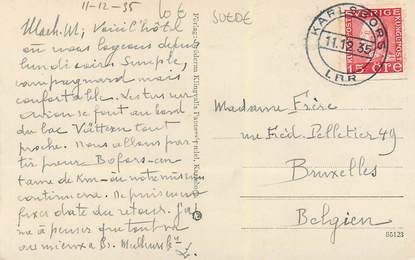 11-12-35
SUEDE
Mach. M, Voici l'hôtel
où nous logeons depuis
lundi soir. Simple,
campagnard mais
confortable. Vestus sur
avion se font au bord
du lac Vättern tout
proche. Nous allons par-
tir pour Bofors-cen-
taine de Km-où notre mission
continuera. Ne puis encore
fixer date du retour. J'ai-
me à penser que tout va
au mieux à Br.
KARLSBORG
11.12.35
LBR
SVERIGE
KUNGL POST
15 ÖRE
Madame Frère
rue Fréd. Pelletier 49
Bruxelles
Belgien
85123